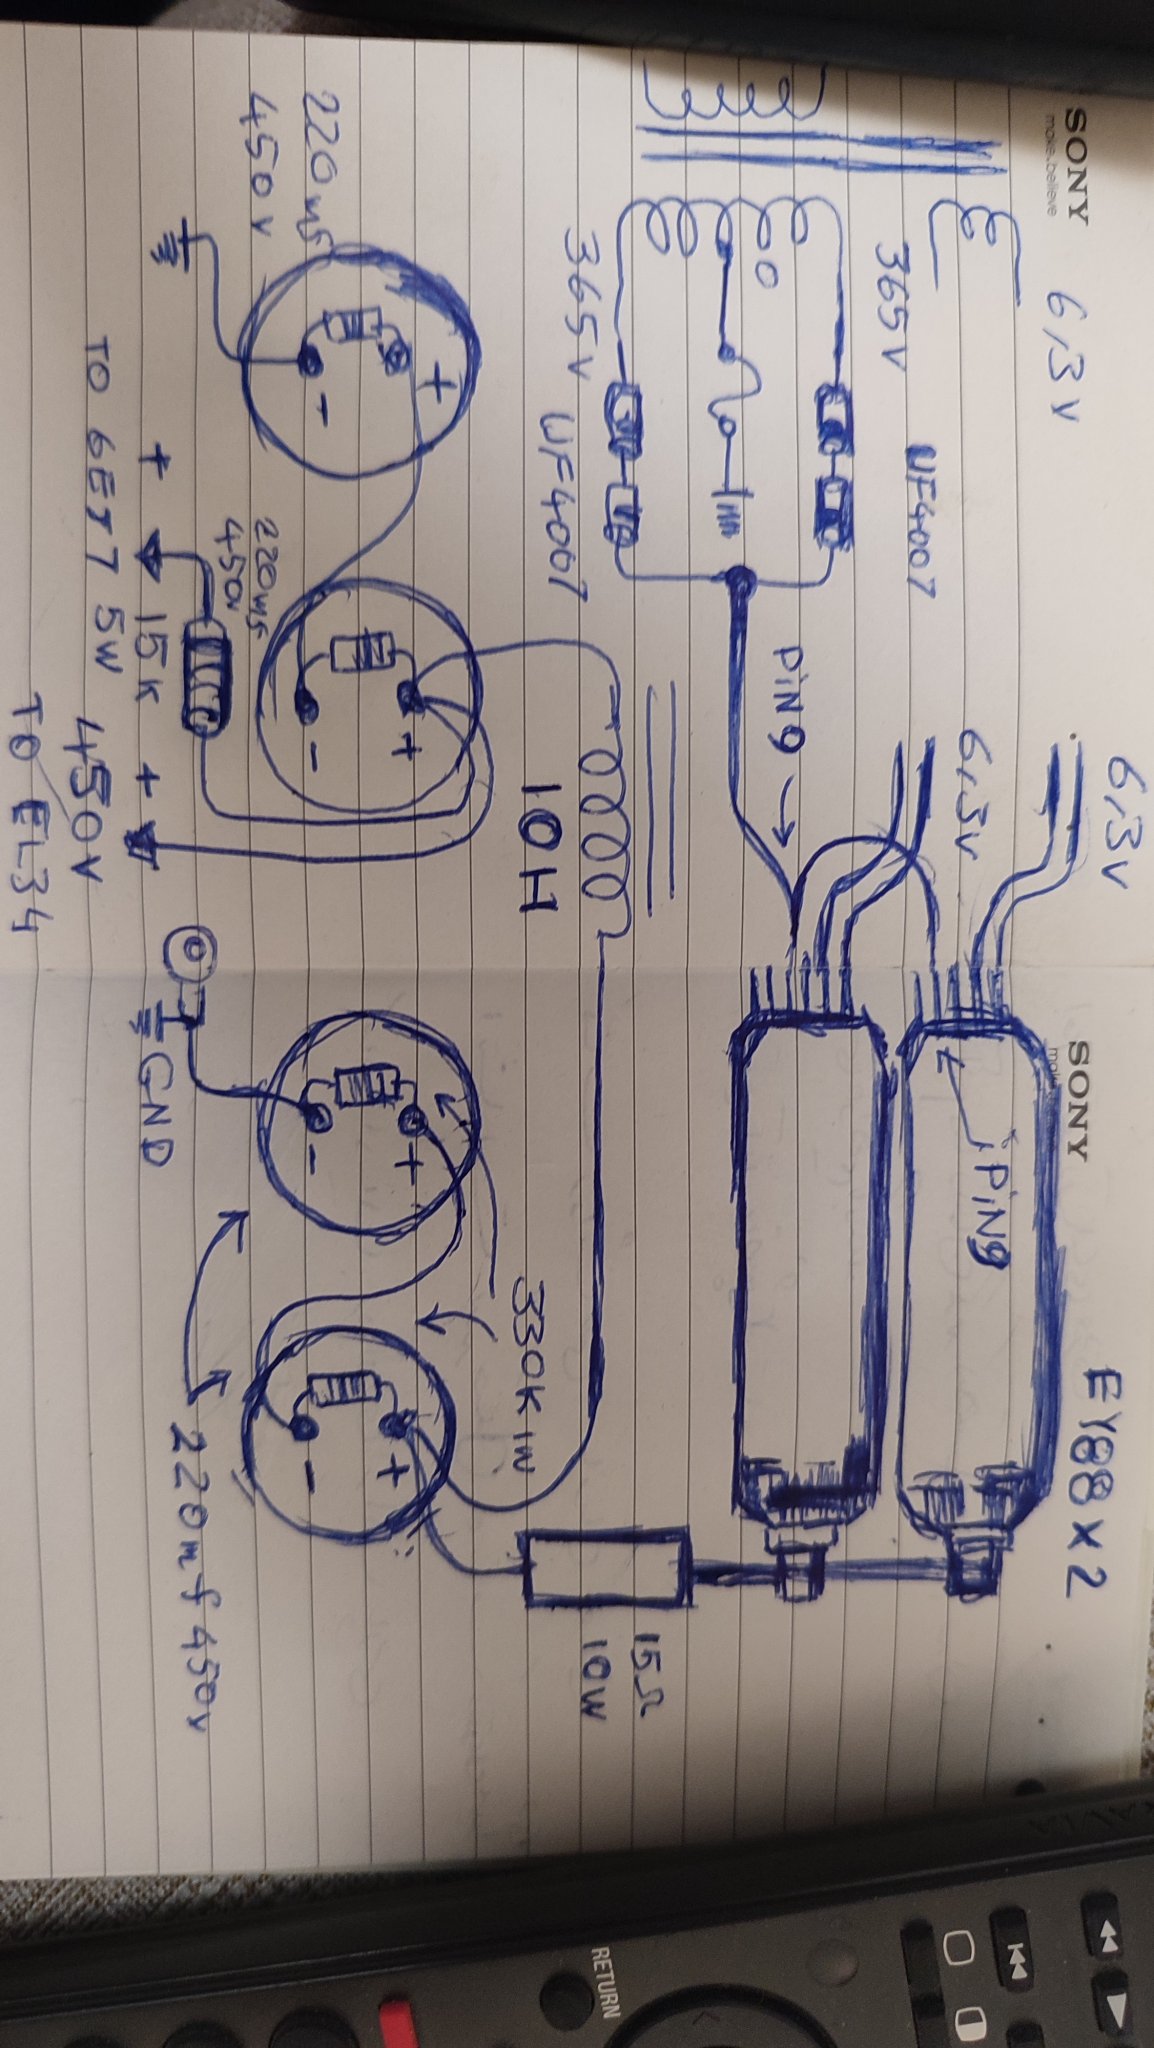 SONY
make.believe
6,3V
6,3V
365V
UF4007
0
365V
UF4007
PIN9
6,3V
SONY
PIN9
EY88 x 2
15Ω
10W
10H
330K 1W
220mf
450V
+
-
220mf
450V
+
-
+
-
+
-
GND
220mf 450V
+
15K
+
TO 6EJ7
5W
450V
TO EL34
RETURN